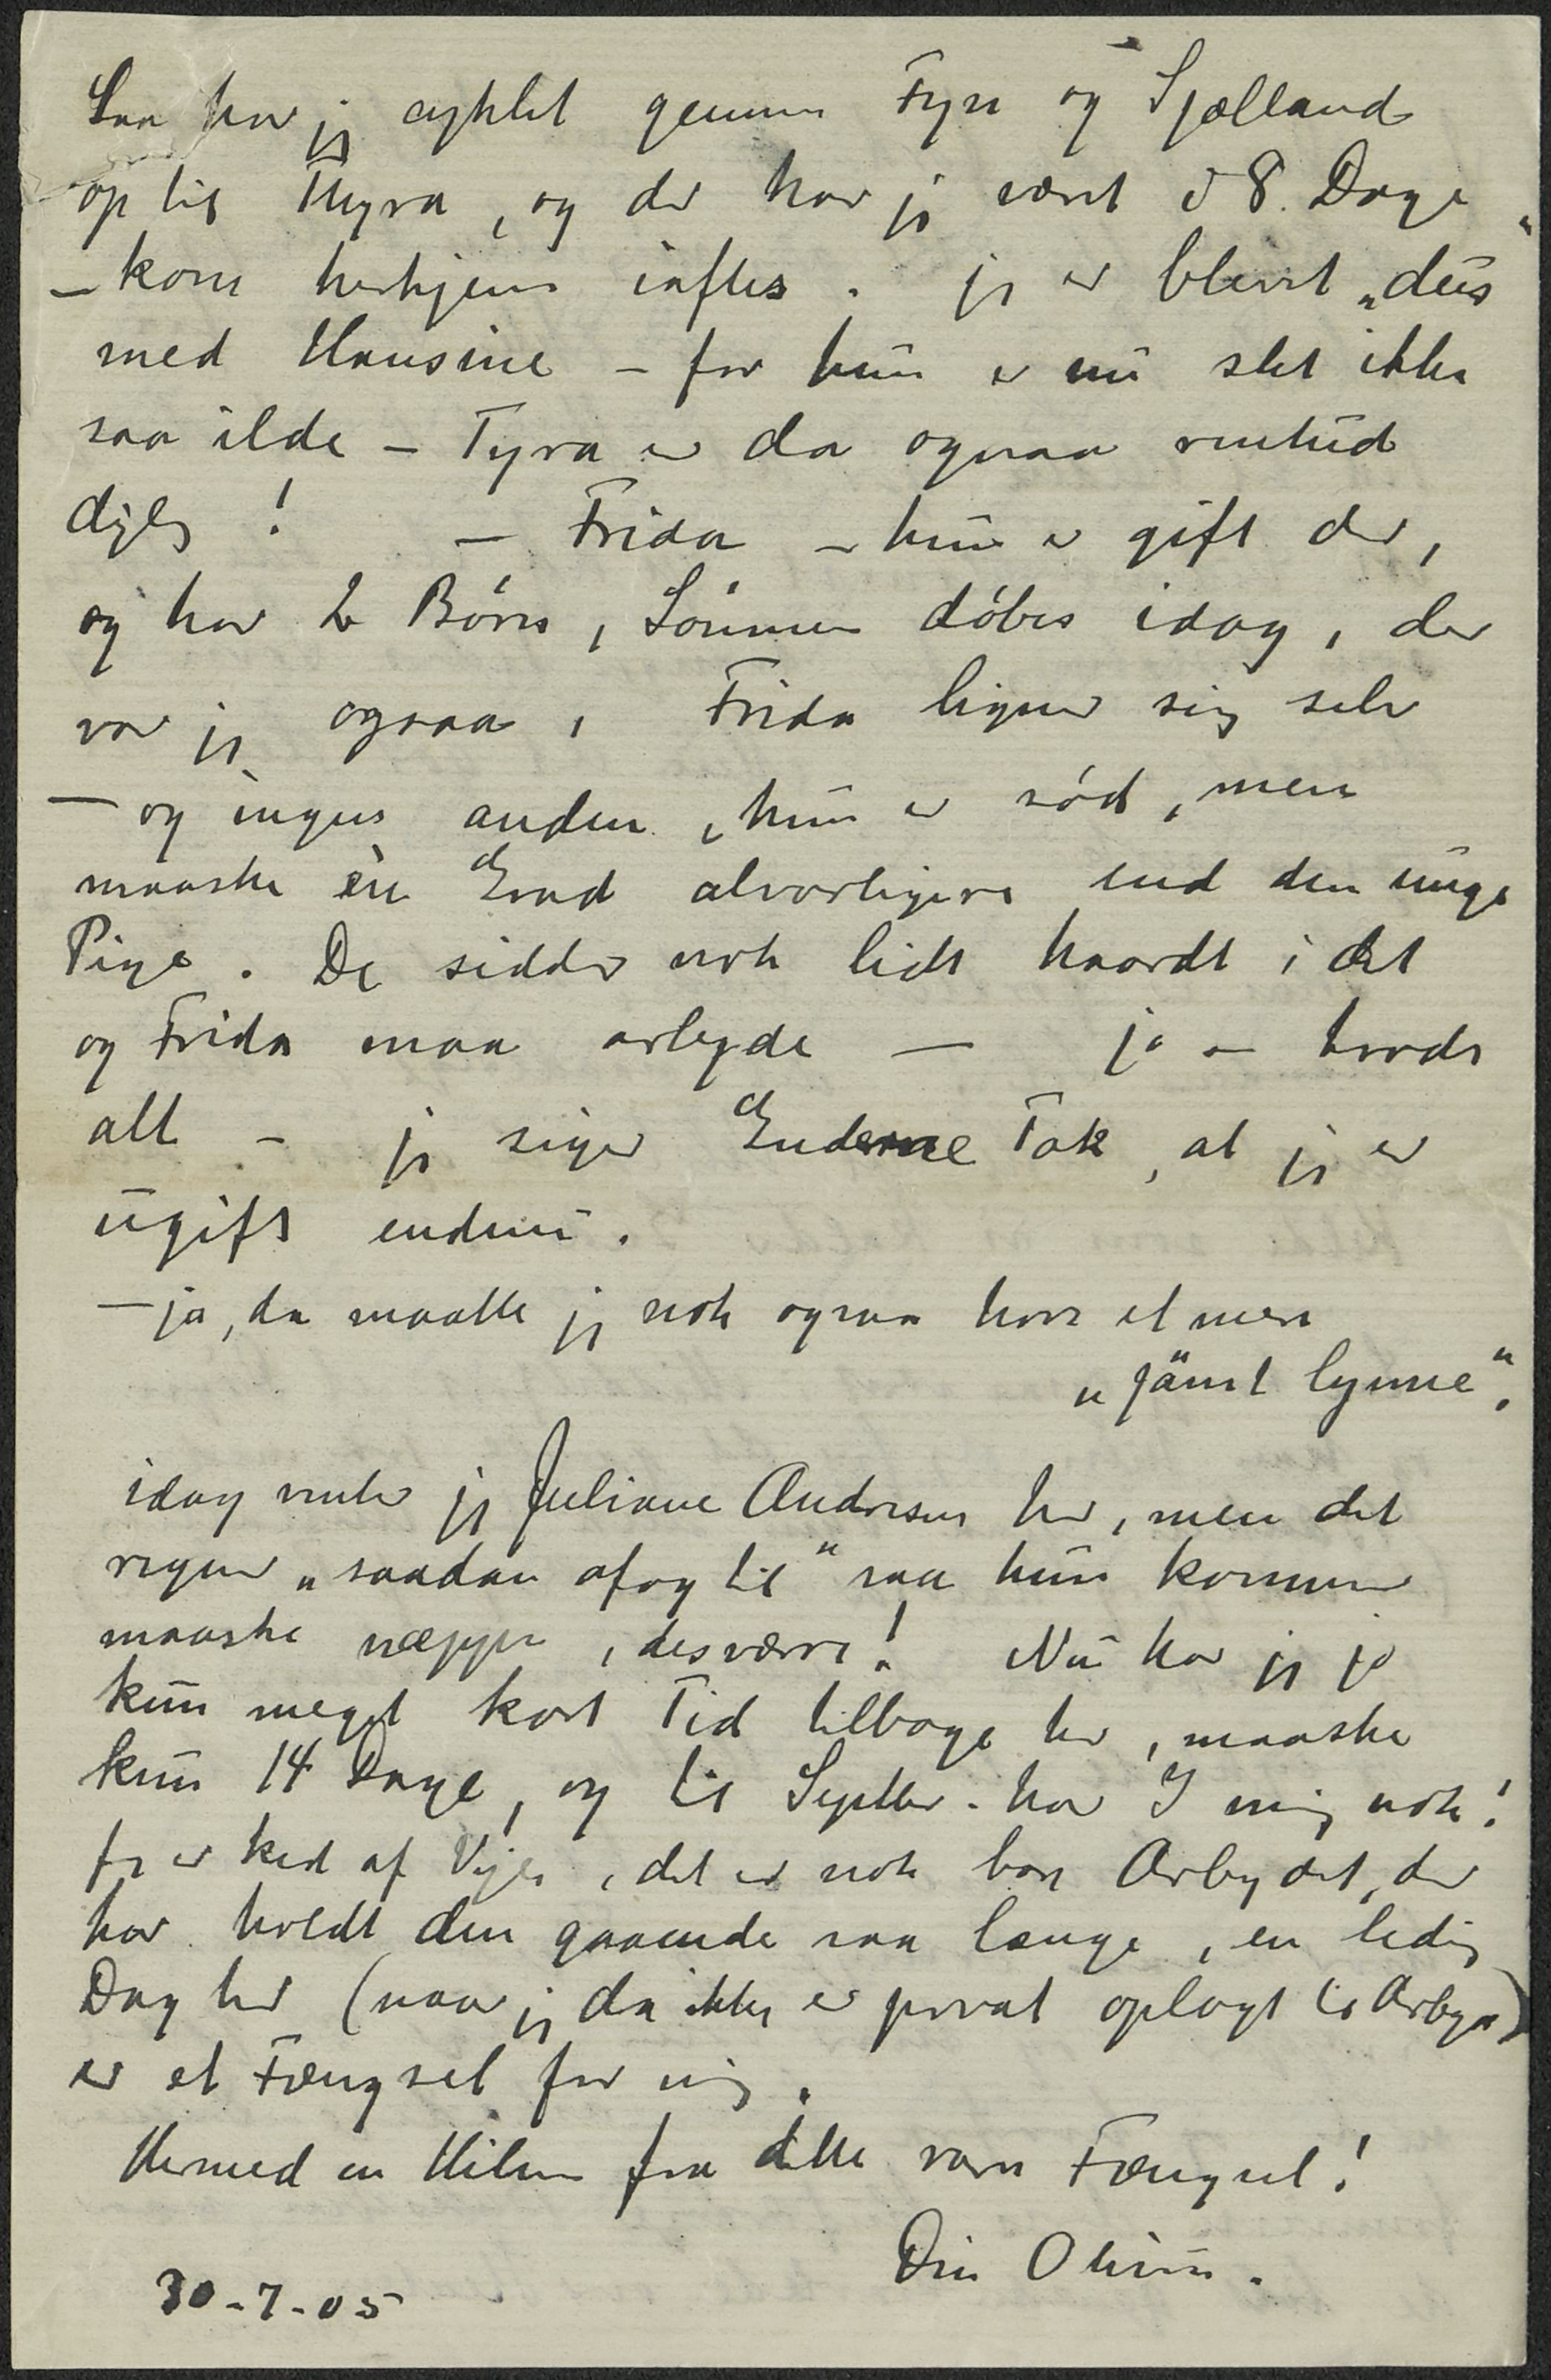 Saa har jeg cyklet gennem Fyn og Sjælland
op til Thyra, og der har jeg været i 8. Dage
– kom herhjem iaftes. jeg er blevet „dus“
med Hansine – for hun er nu slet ikke
saa ilde – Tyra er da ogsaa rentud
dejlig! – Frida – hun er gift der,
og har 2 Børn, Sønnen døbes idag, der
var jeg ogsaa, Frida ligner sig selv
– og ingen anden, hun er sød, men
maaske èn Grad alvorligere end den unge
Pige. De sidder nok lidt haardt i det
og Frida maa arbejde – ja – trods
alt – jeg siger Guderne Tak, at jeg er
ugift endnu.
– ja, da maatte jeg nok ogsaa have et mere
„jämt lynne“.
idag venter jeg Juliane Andresen her, men det
regner „saadan af og til“ saa hun kommer
maaske næppe, desværre! Nu har jeg jo
kun meget kort Tid tilbage her, maaske
kun 14 Dage, og til Septbr. har I mig nok!
jeg er ked af Vejen, det er nok bare Arbejdet, der
har holdt den gaaende saa længe, en ledig
Dag her (naar jeg da ikke er privat oplagt til Arbejde)
er et Fængsel for mig.
Hermed en Hilsen fra dette rare Fængsel!
Din Olivia.
30-7-05